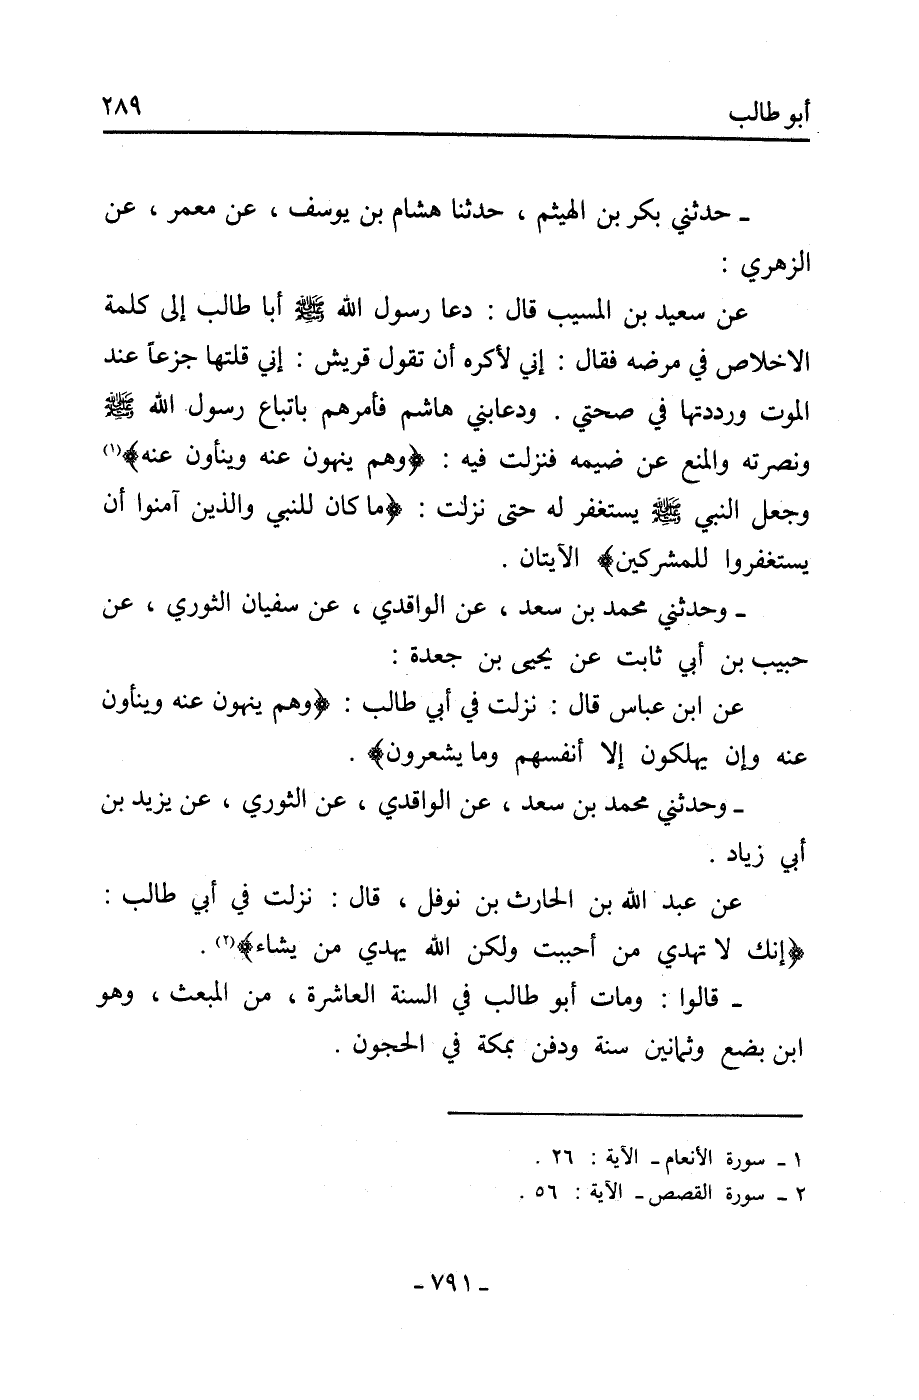 أبو طالب ٢٨٩
ـ حدثني بكر بن الهيثم ، حدثنا هشام بن يوسف ، عن معمر ، عن
الزهري :
عن سعيد بن المسيب قال : دعا رسول الله ﷺ أبا طالب إلى كلمة
الاخلاص في مرضه فقال : إني لأكره أن تقول قريش : إني قلتها جزعاً عند
الموت ورددتها في صحتي . ودعابني هاشم فأمرهم باتباع رسول الله ﷺ
ونصرته والمنع عن ضيمه فنزلت فيه : ﴿وهم ينهون عنه وينأون عنه﴾(١)
وجعل النبي ﷺ يستغفر له حتى نزلت : ﴿ما كان للنبي والذين آمنوا أن
يستغفروا للمشركين﴾ الآيتان .
ـ وحدثني محمد بن سعد ، عن الواقدي ، عن سفيان الثوري ، عن
حبيب بن أبي ثابت عن يحيى بن جعدة :
عن ابن عباس قال : نزلت في أبي طالب : ﴿وهم ينهون عنه وينأون
عنه وإن يهلكون إلا أنفسهم وما يشعرون﴾ .
ـ وحدثني محمد بن سعد ، عن الواقدي ، عن الثوري ، عن يزيد بن
أبي زياد .
عن عبد الله بن الحارث بن نوفل ، قال : نزلت في أبي طالب :
﴿إنك لا تهدي من أحببت ولكن الله يهدي من يشاء﴾(٢) .
ـ قالوا : ومات أبو طالب في السنة العاشرة ، من المبعث ، وهو
ابن بضع وثمانين سنة ودفن بمكة في الحجون .
١ ـ سورة الأنعام ـ الآية : ٢٦ .
٢ ـ سورة القصص ـ الآية : ٥٦ .
ـ ٧٩١ ـ